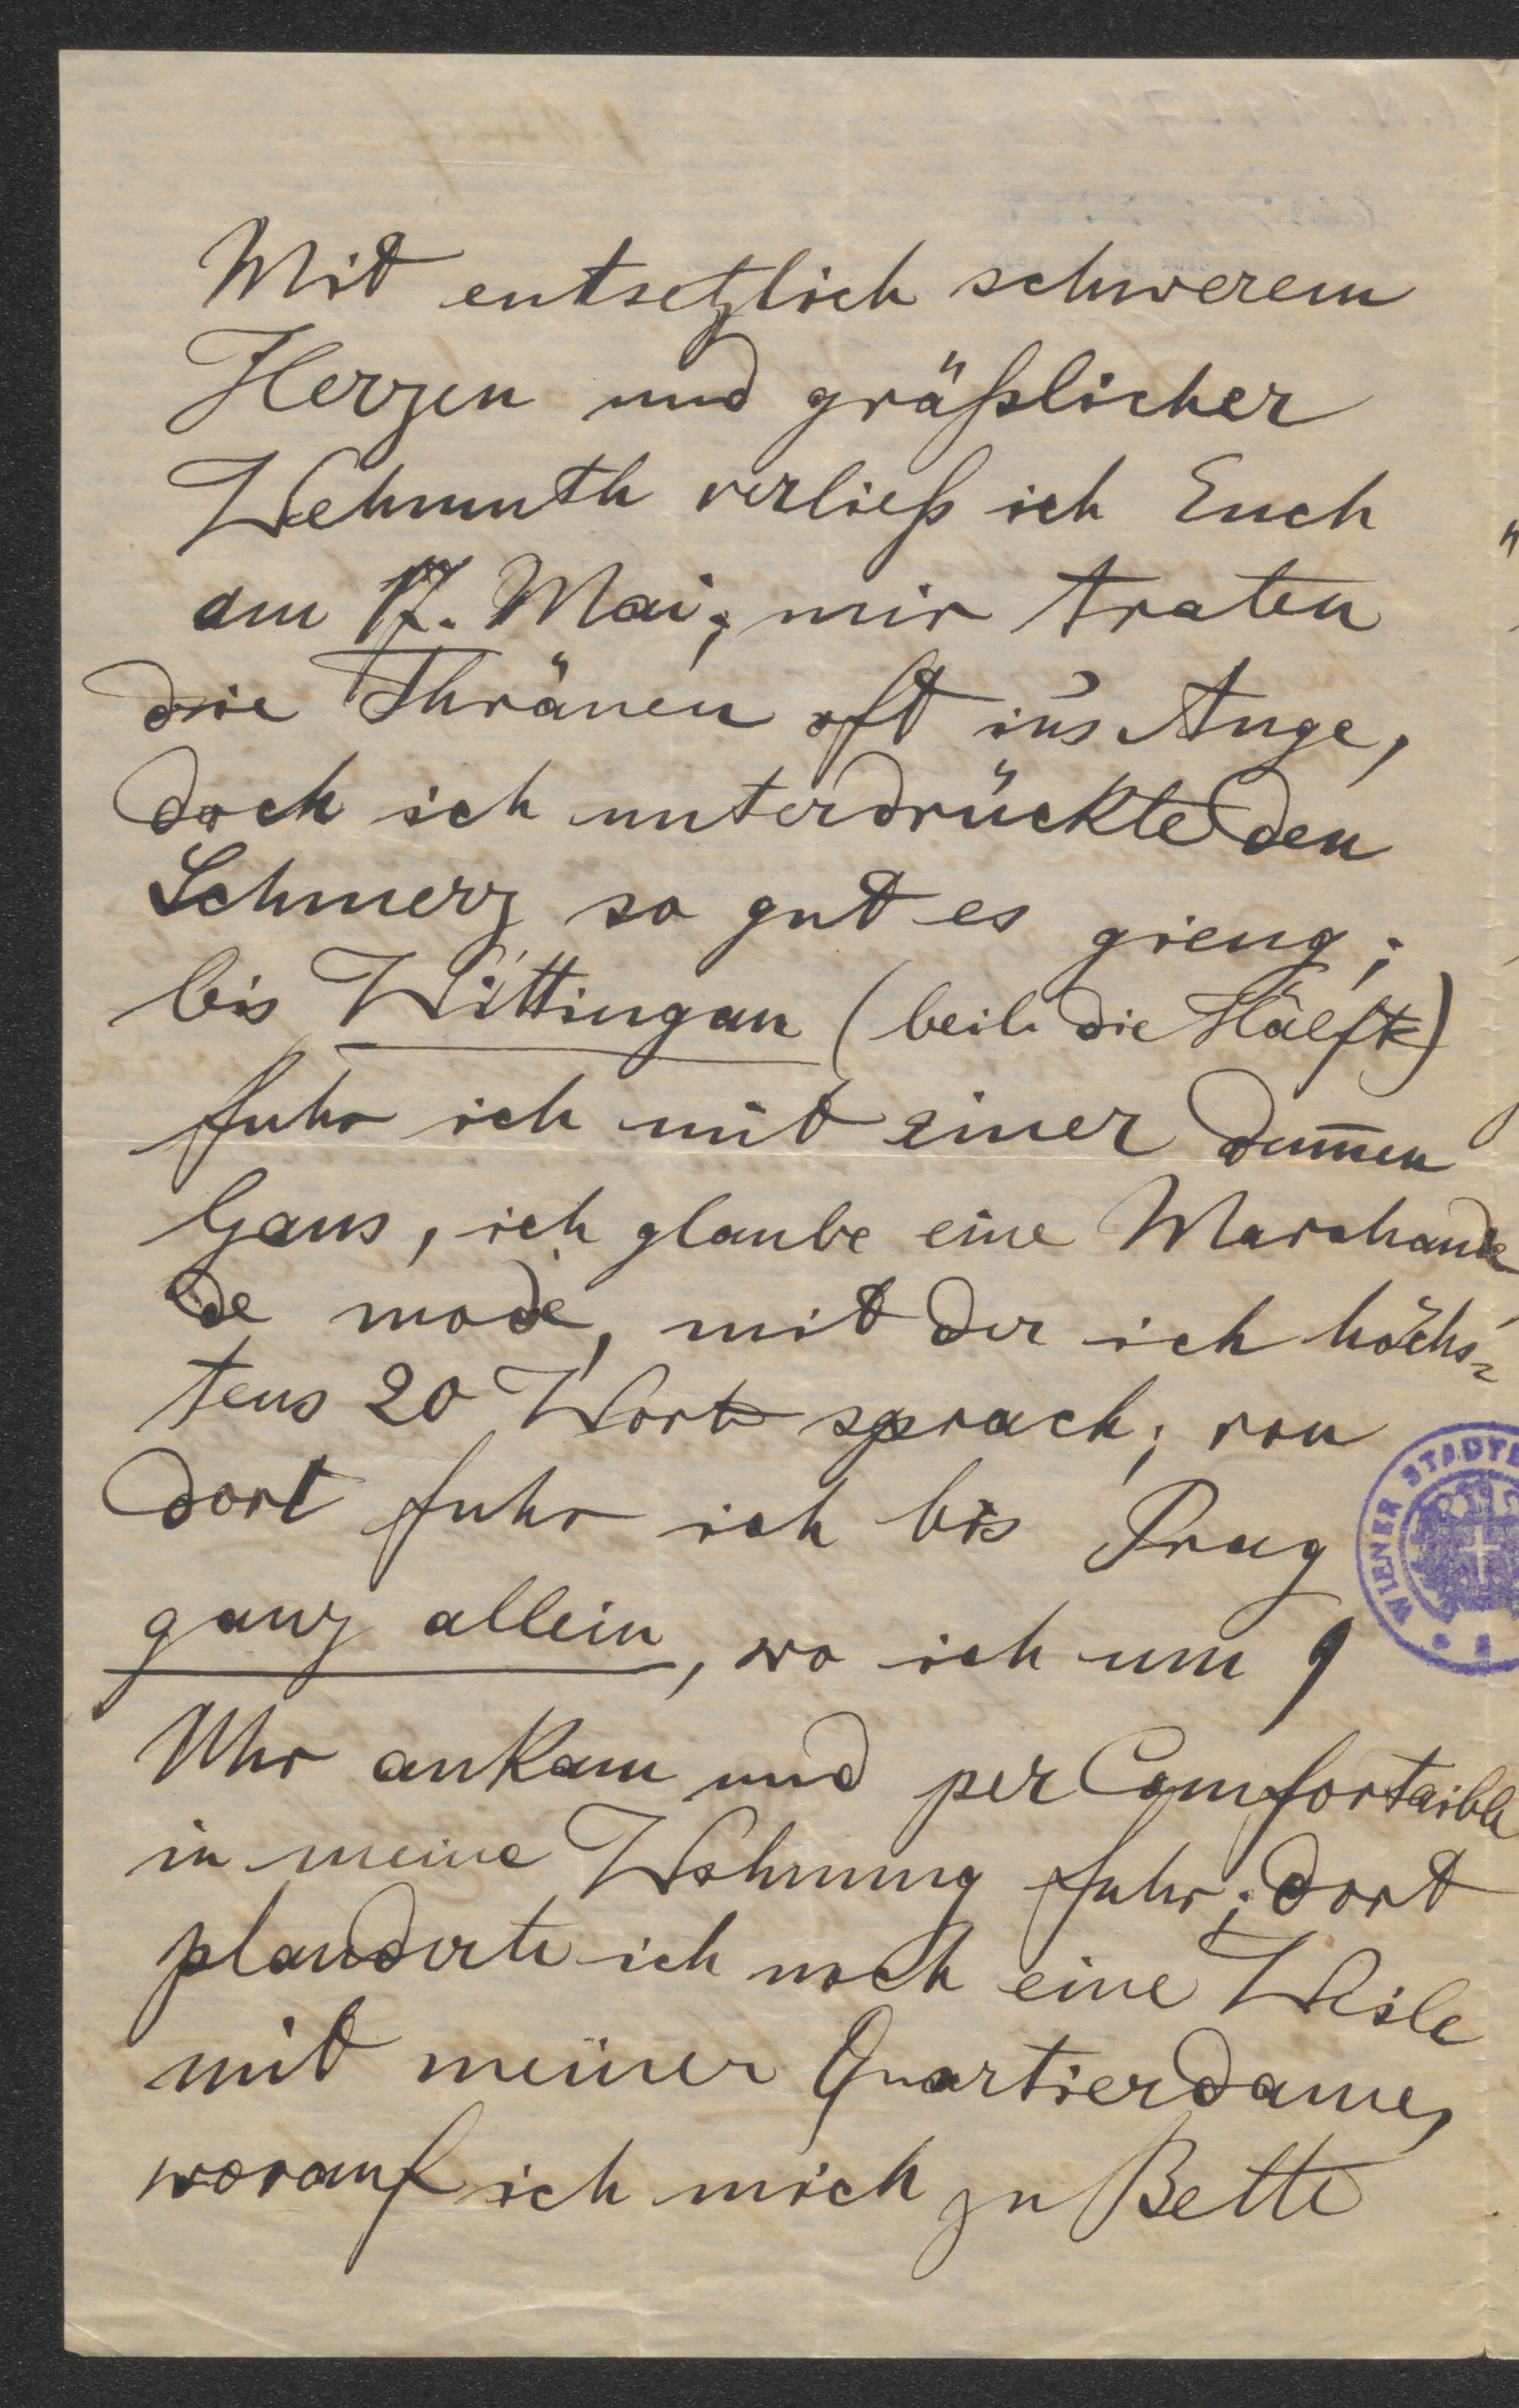 Mit entsetzlich schwerem
Herzen und gräßlicher
Wehmuth verließ ich Euch
am 17. Mai; mir traten
die Thränen oft in's Auge,
doch ich unterdrückte den
Schmerz so gut es gieng;
bis Wittingau (beil. die Hälfte)
fuhr ich mit einer dum̅en
Gans, ich glaube eine Marchande
de mode, mit der ich höchs=
tens 20 Worte sprach; von
dort fuhr ich bis Prag
ganz allein, wo ich um 9
Uhr ankam und per Comfortaible
in meine Wohnung fuhr; dort
plauderte ich noch eine Weile
mit meiner Quartierdame,
worauf ich mich zu Bette
WIENER STADTB